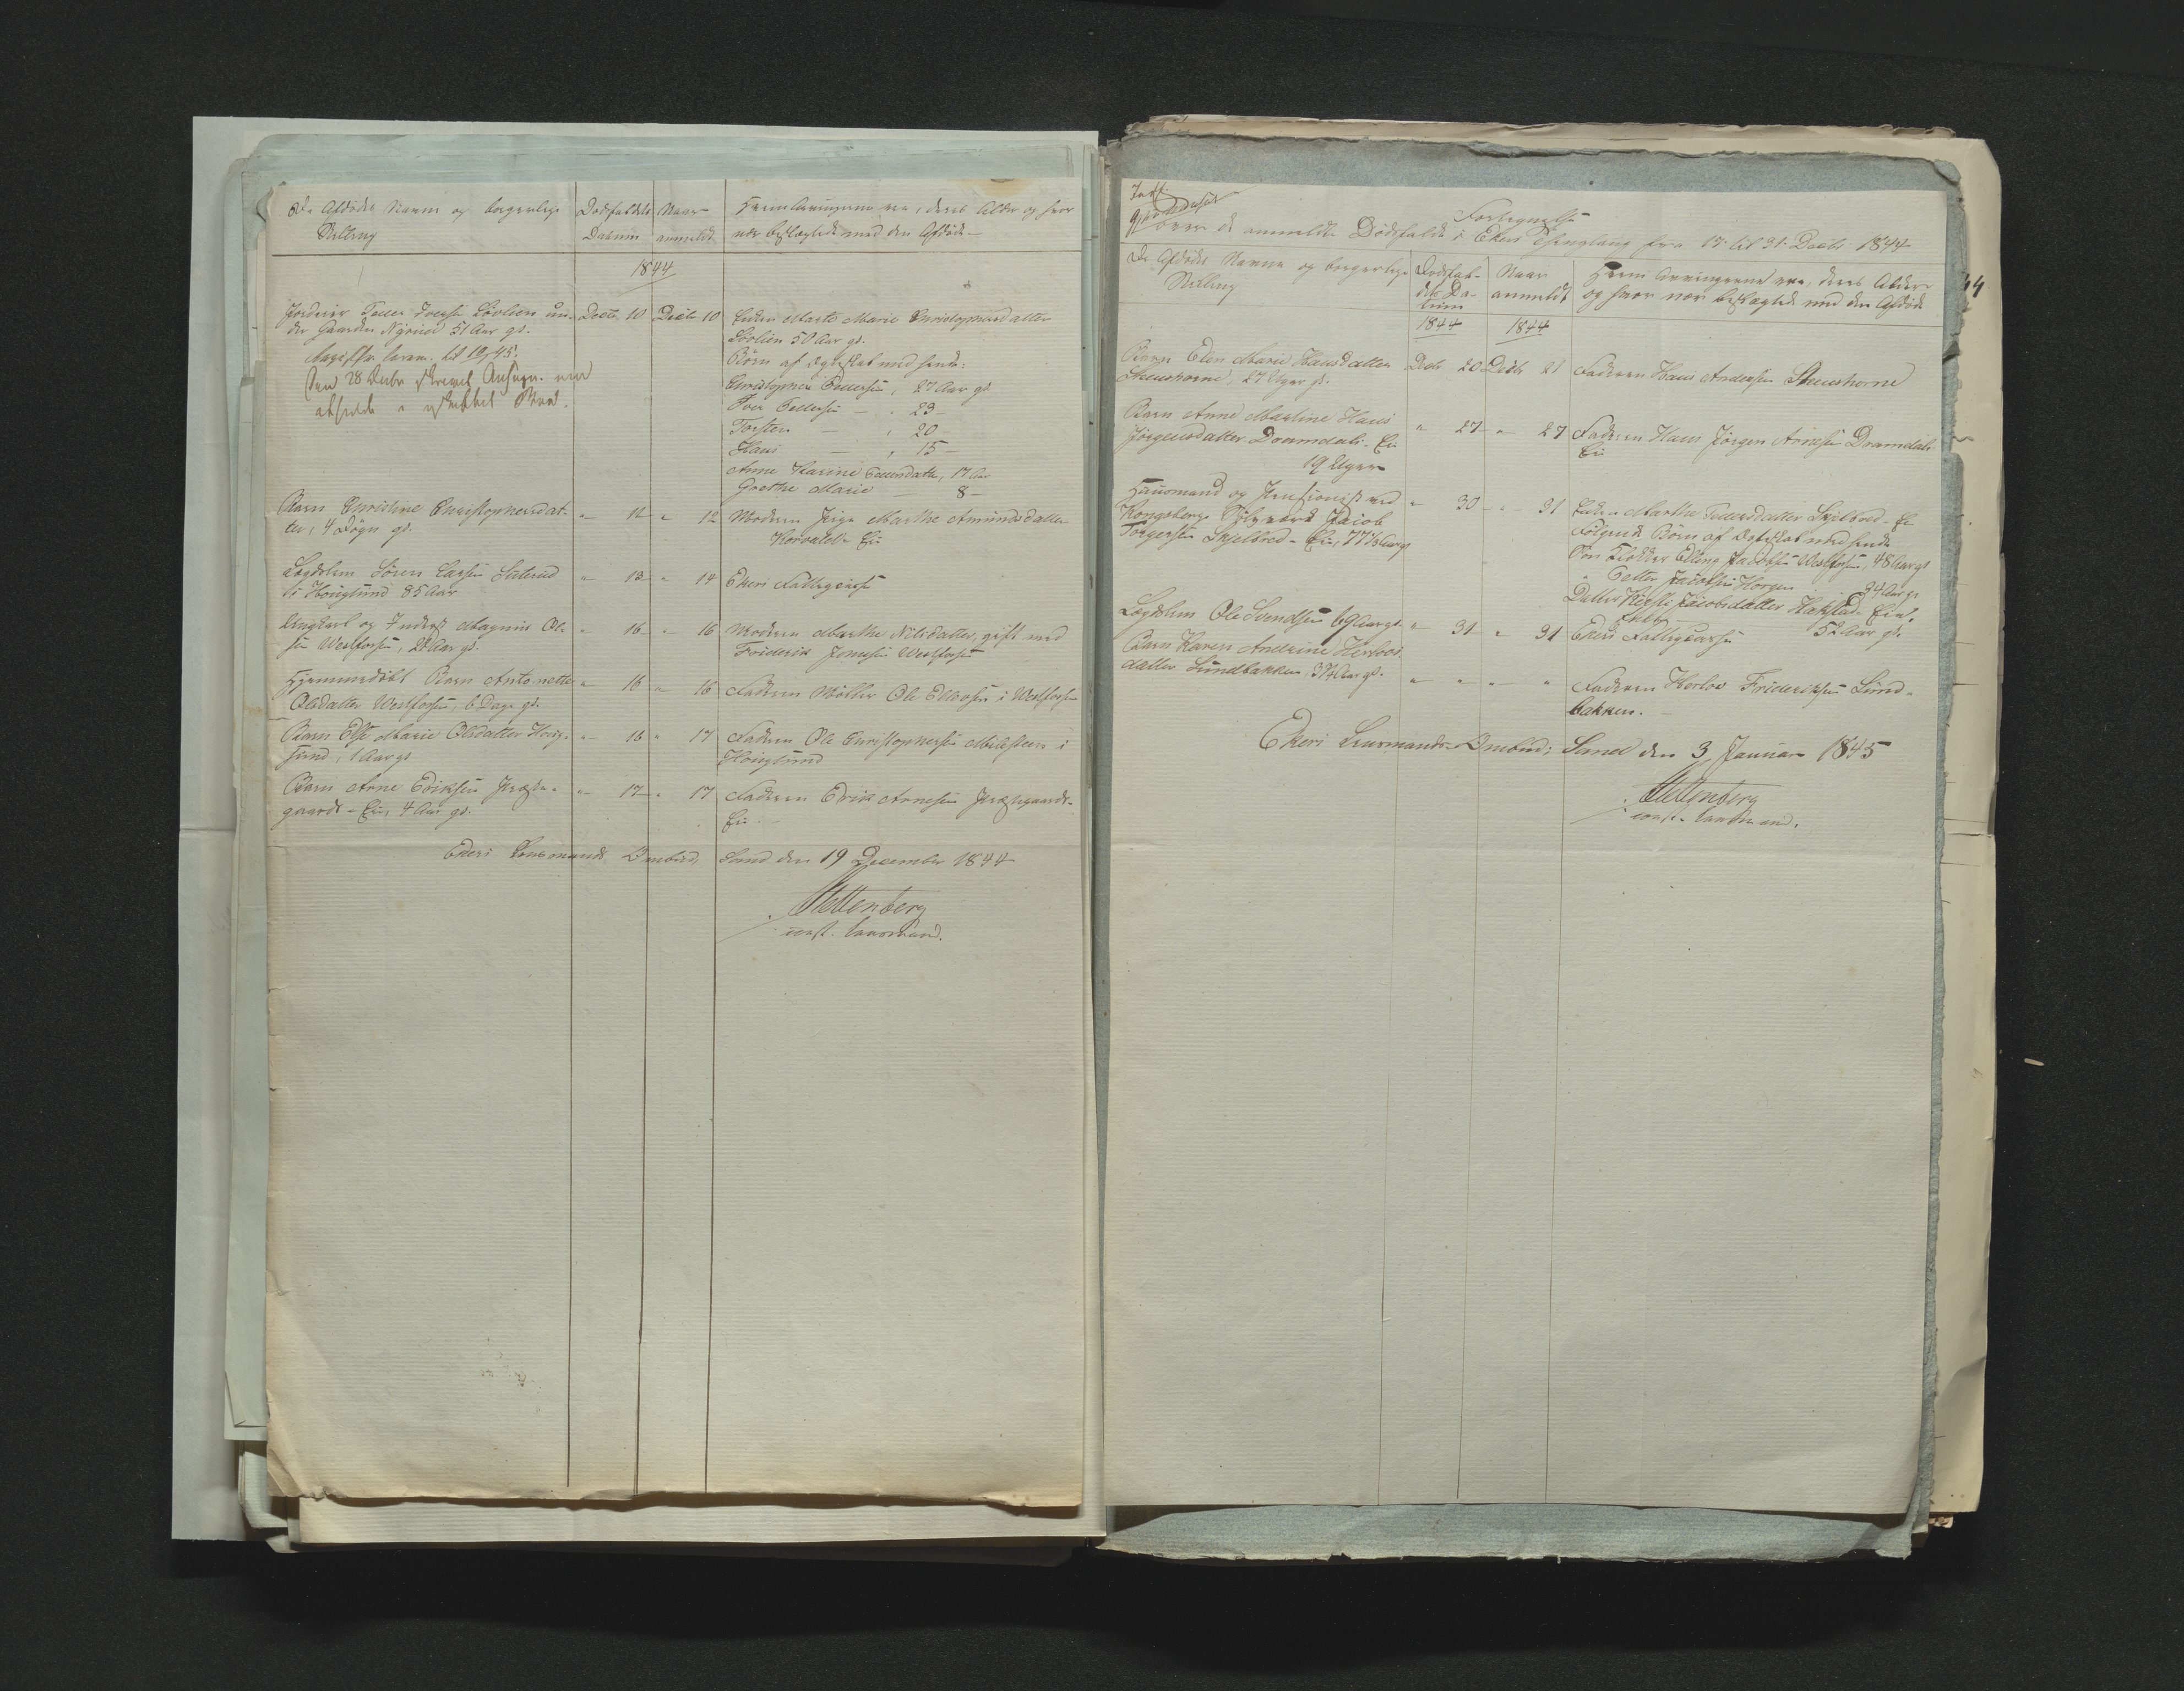 De Afdødes Navne og borgerlige
Stilling
Dødsfaldets
Datum
Naar
anmeldt
Hvem Arvingerne ere, deres Alder og hvor
nær beslægtede med den Afdøde
1844
Iversen Løvlien un-
der Gaarden 51 Aar gl.
Decbr 10 Decbr 10
til 19/45.
Den 28 Decbr
Enken Marte Marie Christophersdatter
Løvlien 50 Aar gl.
Børn af Egteskab med hende:
Christopher Tollersen, 27 Aar gl.
Iver Tollersen — 23 —
Torsten — 20 —
Hans — 15 —
Anne Karine Tollersdatter, 17 Aar
Grethe Marie — 8 —
Barn Christine Christophersdat-
ter, 4 Døgn gl.
" 12 " 12
Moderen Pige Marthe Amundsdatter
Eie
Lægdslem Søren Larsen
i Hougsund 85 Aar
" 13 " 14
Ekers Fattigcasse
Ungkarl og Inderst Magnus Ol-
sen Westfossen, Aar gl.
" 16 " 16
Moderen Marthe Nilsdatter, gift med
Friderik Jonsen Westfossen
Hjemmedøbt Barn Antonette
Olsdatter Westfossen, 6 Dage gl.
" 16 " 16
Faderen Møller Ole Ellevsen i Westfossen
Barn Else Marie Olsdatter Houg-
sund, 1 Aar gl.
" 16 " 17
Faderen Ole Christophersen Milesteen i
Hougsund
Barn Arne Eriksen Præste-
gaards-Eie, 4 Aar gl.
" 17 " 17
Faderen Erik Arnesen Præstegaards-
Eie
Ekers Lensmands Ombud, Sand den 19 December 1844
Stettenberg
const. Lensmand.
Fortegnelse
over de anmeldte Dødsfalde i Ekers Thinglaug fra 17 til 31 Decbr 1844
De Afdødes Navne og borgerlige
Stilling
Dødsfal-
dets Da-
tum
Naar
anmeldt
Hvem Arvingerne ere, deres Alder
og hvor nær beslægtede med den Afdøde
1844 1844
Barn Elen Marie Hansdatter
Steenshorne, 27 Uger gl.
Decbr 20 Decbr 21
Faderen Hans Andersen Steenshorne
Barn Anne Martine Hans
Jørgensdatter Dramdals-Eie
19 Uger
" 27 " 27
Faderen Hans Jørgen Arnesen Dramdals
Eie
Huusmand og Pensionist ved
Kongsbergs Sølvværk Jacob
Torgersen Skjelbred-Eie, 77½ Aar gl
" 30 " 31
Enken Marthe Tollersdatter Skjelbred-Eie
Følgende Børn af Egteskab med hende
Søn Elling Jacobsen Westfossen, 48 Aar gl
" Petter Jacobsen Horgen 34 Aar gl
Datter Kirsti Jacobsdatter Hakstad-Eie,
52 Aar gl.
Lægdslem Ole Svendsen 69 Aar gl.
" 31 " 31
Ekers Fattigcasse
Barn Karen Andrine Herlovs-
datter Lundbakken, 3¼ Aar gl.
" " " "
Faderen Herlov Frideriksen Lund-
bakken.
Ekers Lensmands-Ombud; Sand den 3 Januar 1845
Stettenberg
const. Lensmand.